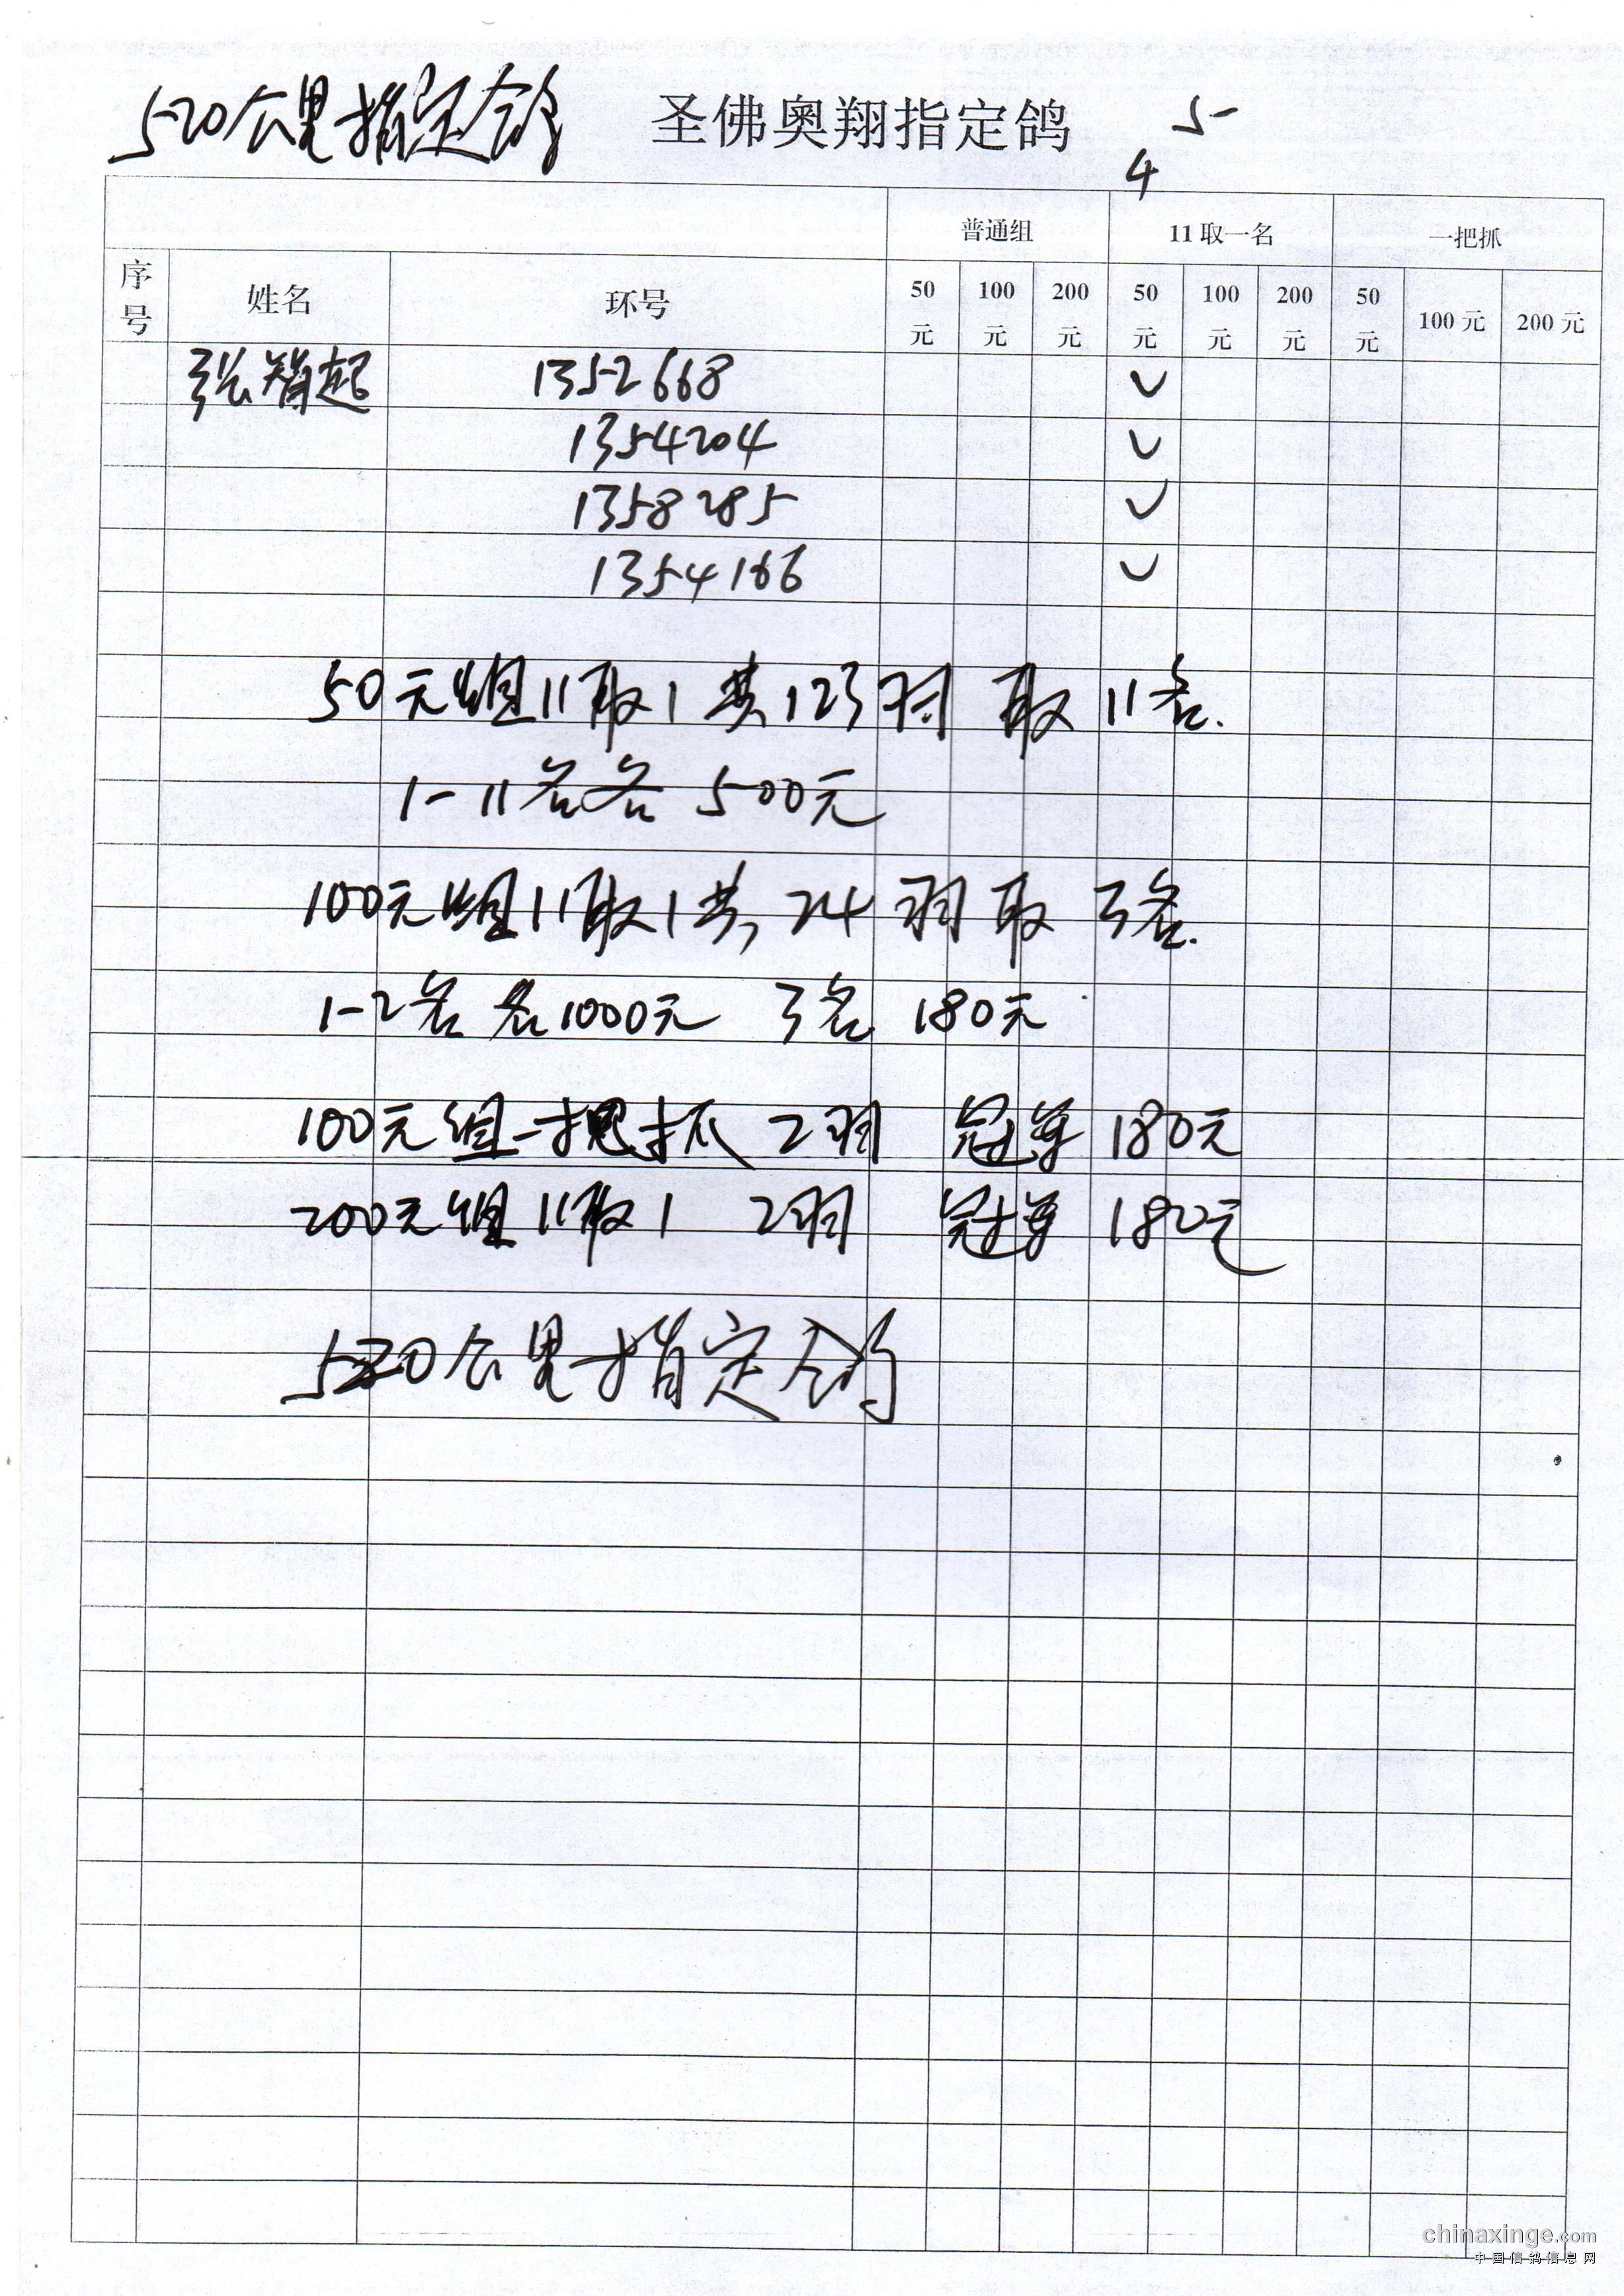 520公里指定鸽 圣佛奥翔指定鸽 5
4
普通组 11取一名 一把抓
序号 姓名 环号 50元 100元 200元 50元 100元 200元 50元 100元 200元
张 起 1352668 ✓
1354204 ✓
1358285 ✓
1354166 ✓
50元组11取1共123羽 取 11名.
1-11名各 500元
100元组11取1共, 24羽取 3名.
1-2名各1000元 3名 180元
100元组一把抓 2羽 冠军 180元
200元组11取1 2羽 冠军 180元
520公里指定鸽
chinaxinge.com
中国信鸽信息网